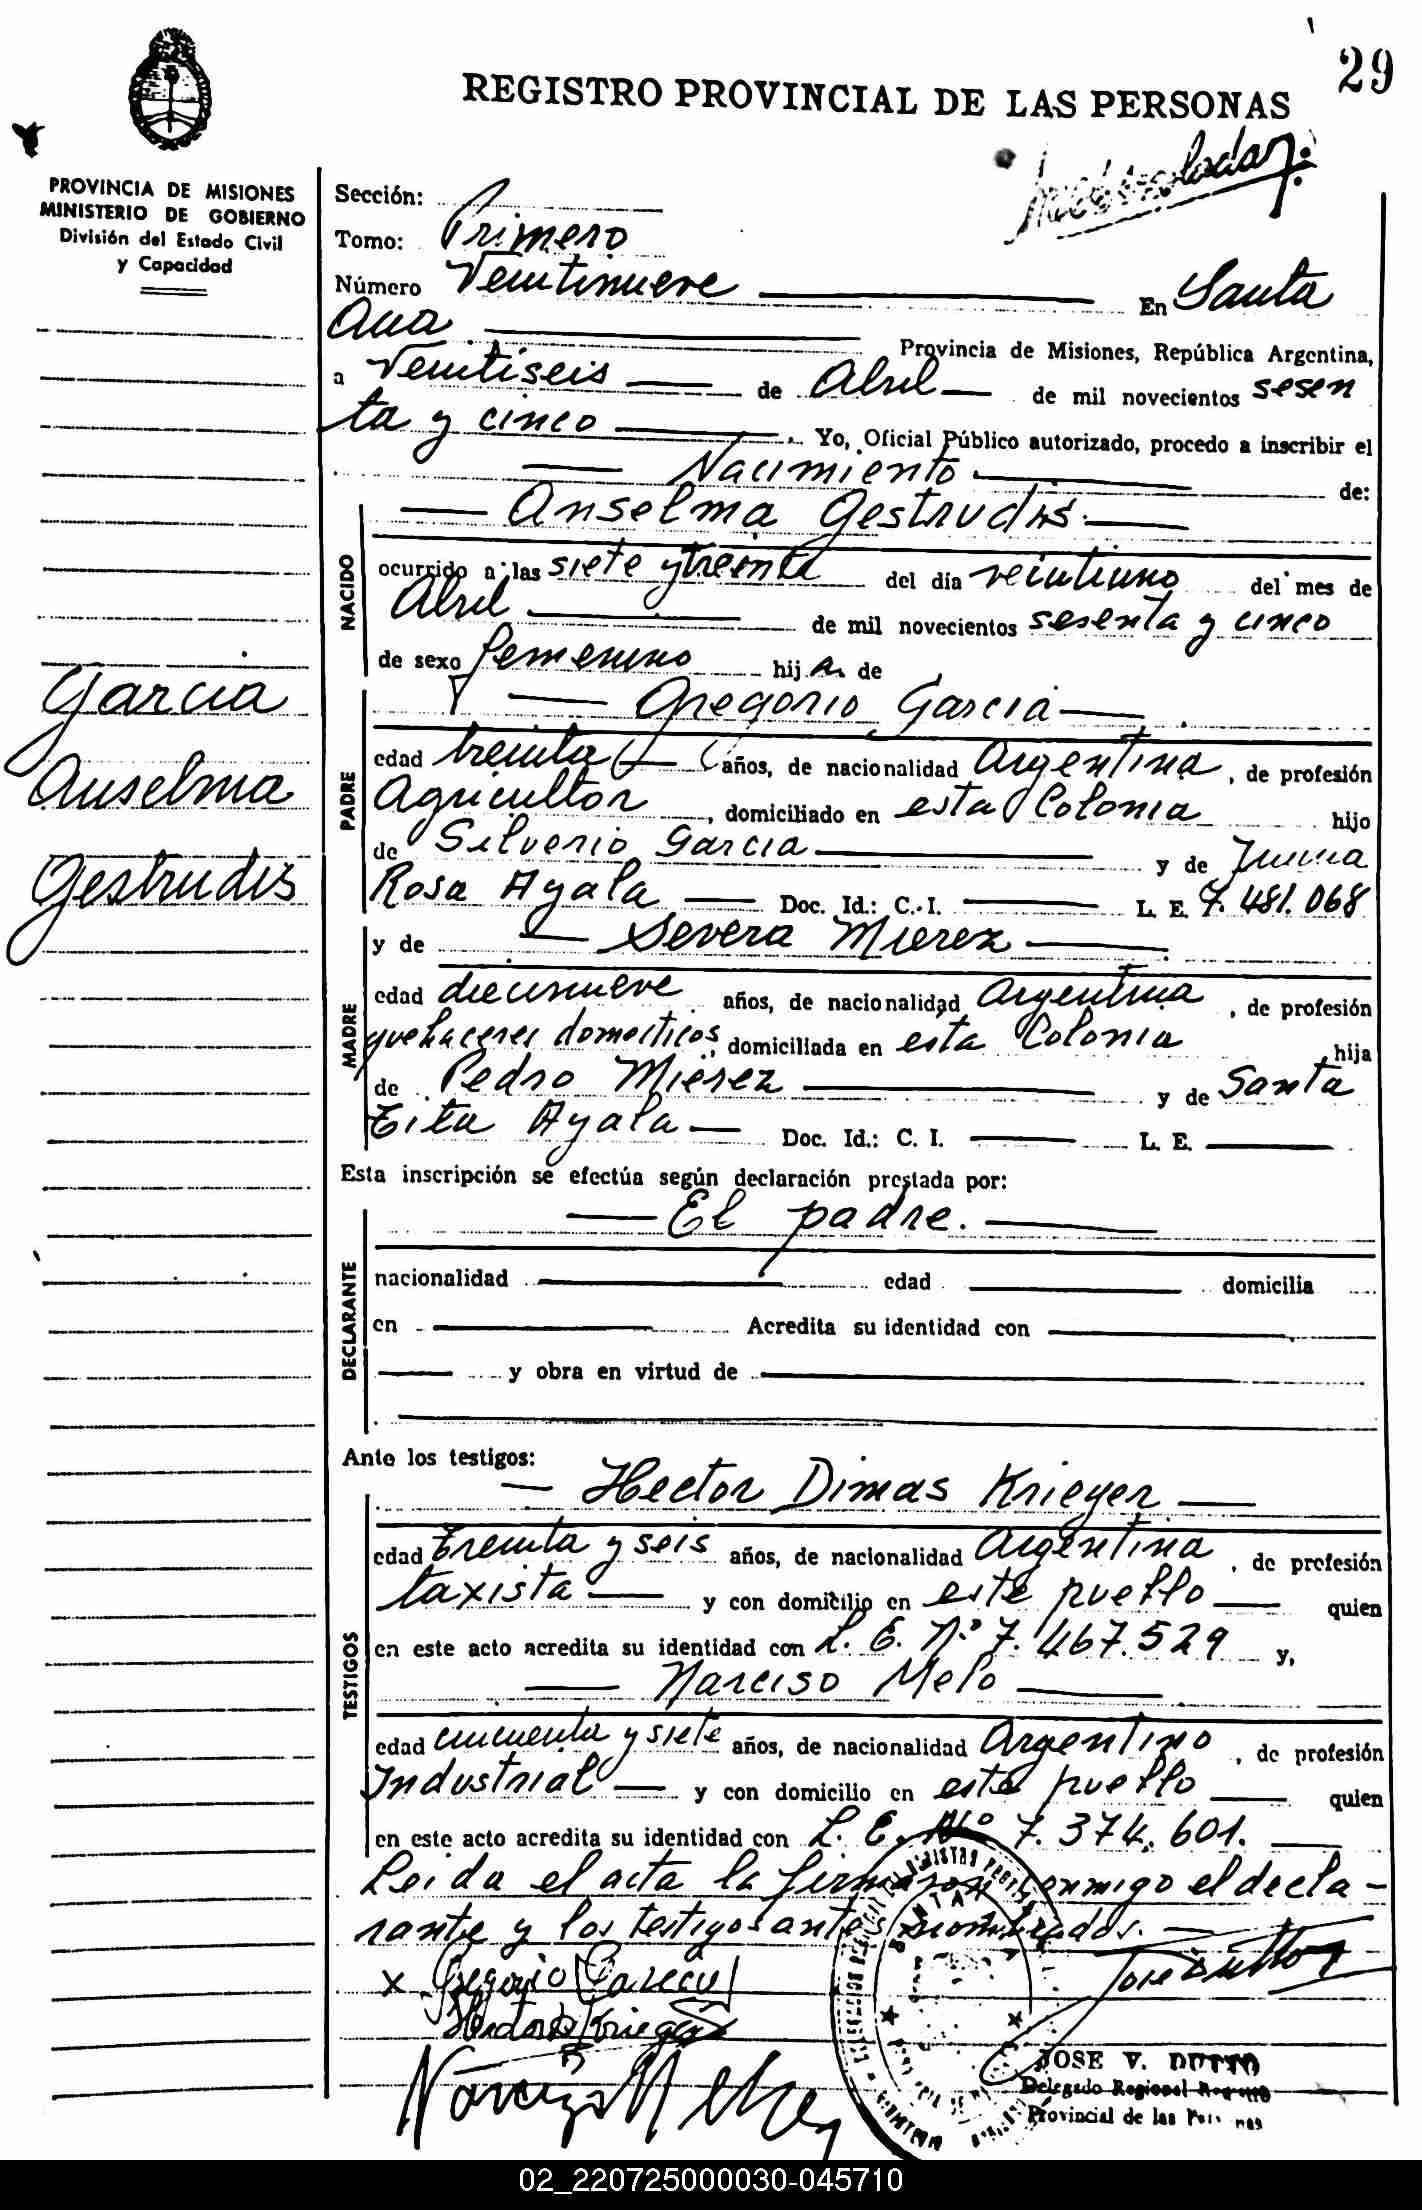 29
REGISTRO PROVINCIAL DE LAS PERSONAS
PROVINCIA DE MISIONES
MINISTERIO DE GOBIERNO
División del Estado Civil
y Capacidad
Sección:
Tomo: Primero
Número Veintinueve En Santa
Ana Provincia de Misiones, República Argentina,
a Veintiseis de Abril de mil novecientos sesen
ta y cinco . Yo, Oficial Público autorizado, procedo a inscribir el
Nacimiento de:
Anselma Gestrudis
NACIDO
ocurrido a las siete y treinta del día veintiuno del mes de
Abril de mil novecientos sesenta y cinco
de sexo femenino hija de
Gregorio Garcia
García
Anselma
Gestrudis
PADRE
edad treinta años, de nacionalidad Argentina, de profesión
Agricultor, domiciliado en esta Colonia hijo
de Silverio Garcia y de
Rosa Ayala Doc. Id.: C. I. L. E. 7.481.068
y de Severa Mierez
MADRE
edad diecinueve años, de nacionalidad Argentina, de profesión
quehaceres domesticos, domiciliada en esta Colonia, hija
de Pedro Mierez y de Santa
Ayala Doc. Id.: C. I. L. E.
Esta inscripción se efectúa según declaración prestada por:
El padre.
DECLARANTE
nacionalidad edad domicilia
en Acredita su identidad con
y obra en virtud de
Ante los testigos:
Hector Dimas Krieger
TESTIGOS
edad treinta y seis años, de nacionalidad Argentina, de profesión
taxista y con domicilio en este pueblo quien
en este acto acredita su identidad con L. E. Nº 7.467.529 y,
Narciso Melo
edad cincuenta y siete años, de nacionalidad Argentino, de profesión
Industrial y con domicilio en este pueblo quien
en este acto acredita su identidad con L. E. Nº 7.374.601.
Leida el acta la firmaron conmigo el decla-
rante y los testigos antes nombrados.
x Gregorio Garcia
JOSE V. DUTTO
Delegado Regional Registro
Provincial de las Personas
02_220725000030-045710